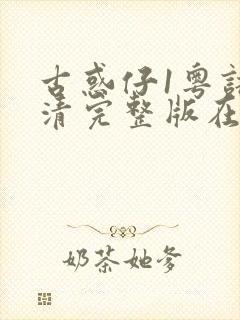 古惑仔1粤
清完整版在
奶茶她爹